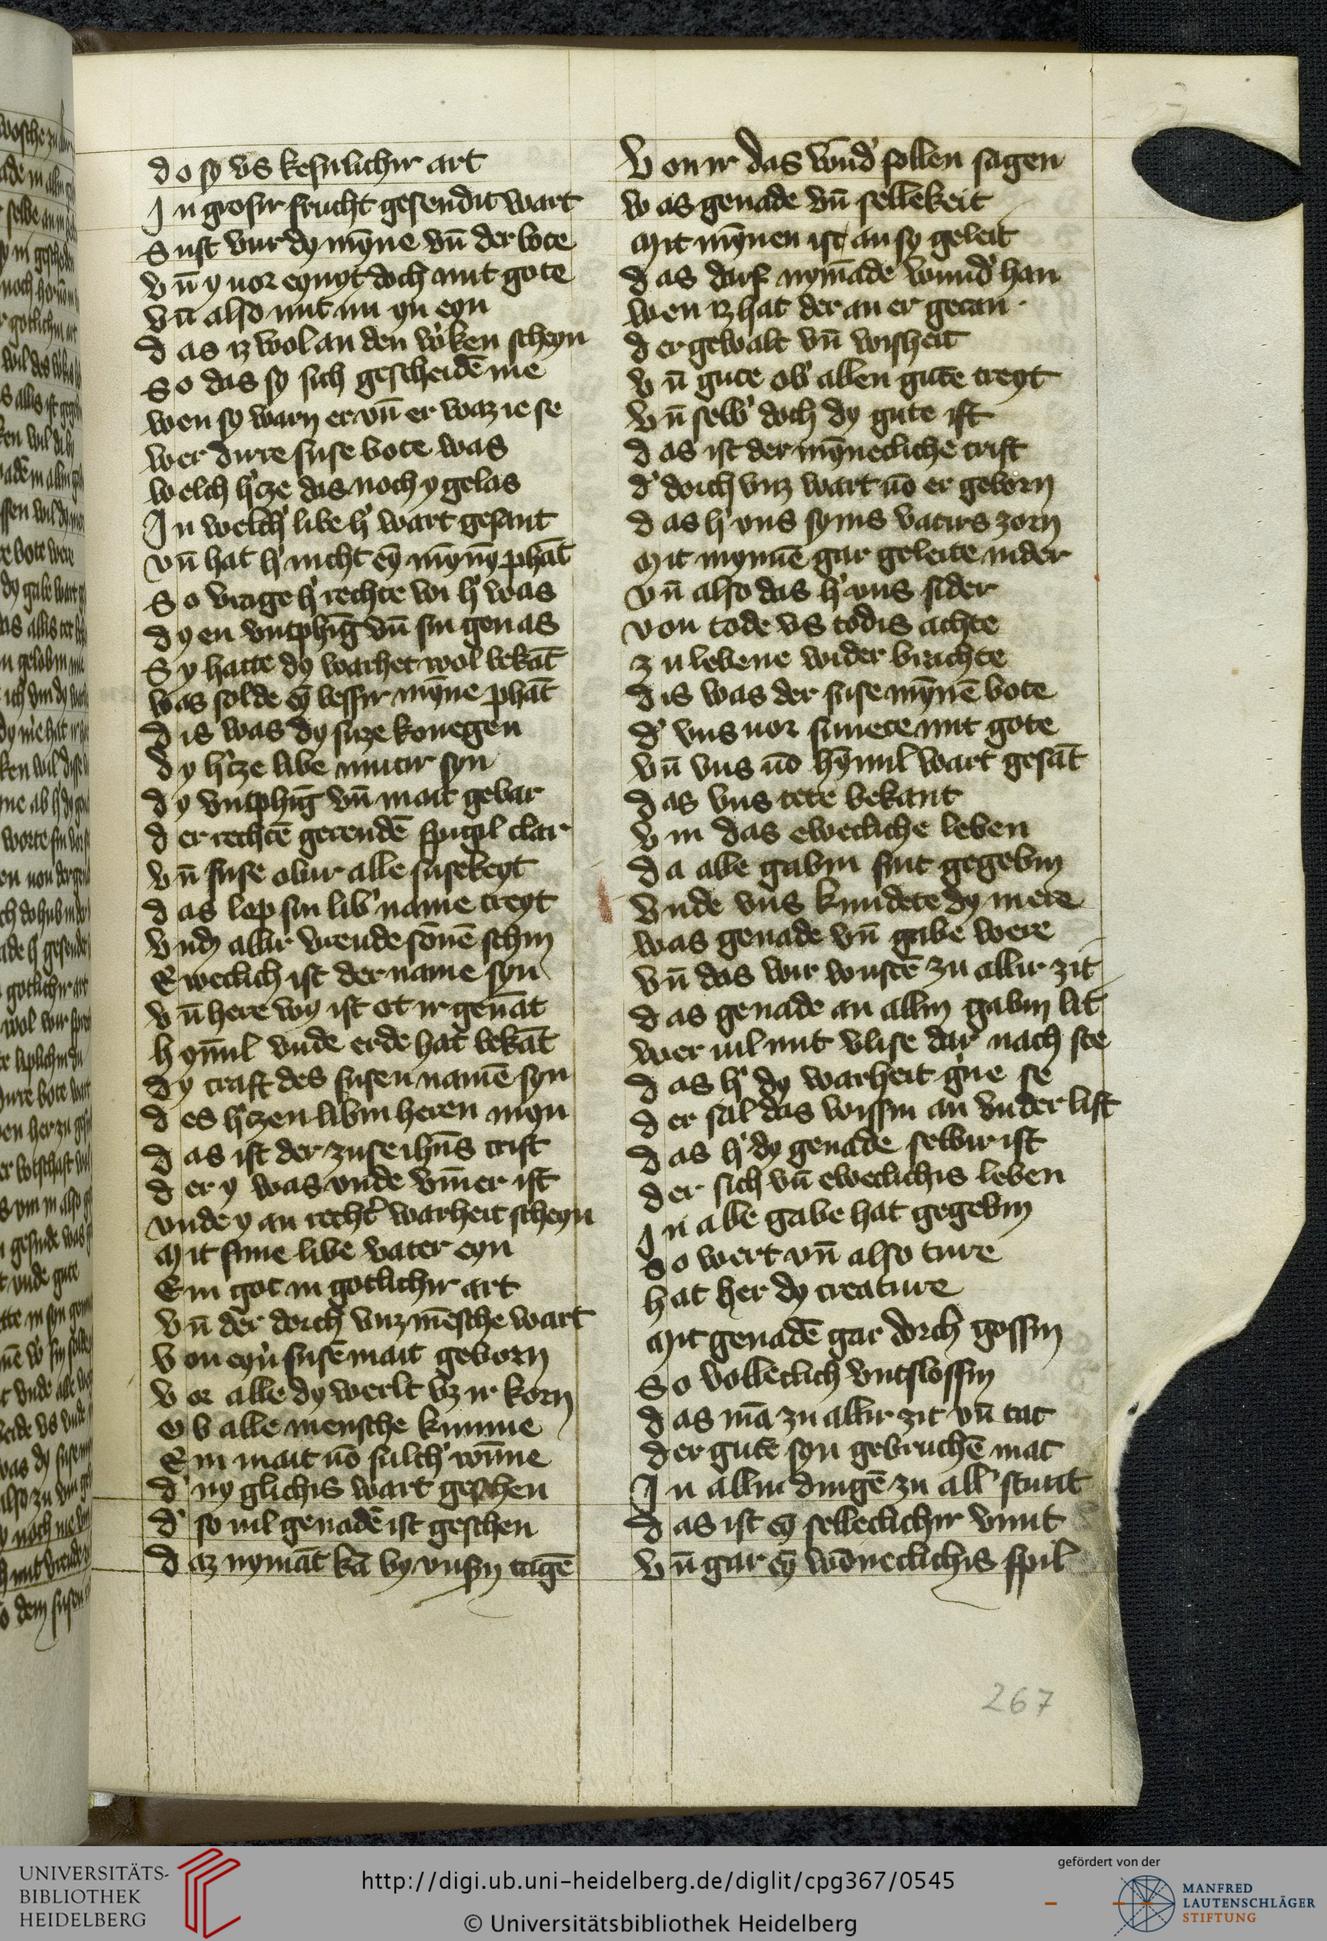 do sy vs kesulichir art
In grosir frucht gesendit wart
Sust vur dy mỹne vñ der bote
vñ y uor eynyt doch mit gote
vñ also mit im yn eyn
das iz wol an den w'ken scheyn
So das sy sich gescheidē nie
wen sy warn er vñ er waz ie se
wer dure suse bote was
welch h'cze das noch y gelas
In welch' libe h' wart gesant
vñ hat h' nicht eȳ mȳnȳ phāt
So vrage h' rechte wi h' was
dy en vntphīg vñ sin genas
Sy hatte dy warheit wol bekāt
was solde eȳ bessir mȳne phāt
dis was dy suze konegen
dy h'cze libe mutir syn
dy vntphīg vñ mait gebar
der rechtē gerendē spigil clar
vñ suse obir alle susekeyt
das lop sin lib' name treyt
vnd allir vreude sōnē schin
Eweclich ist der name syn
vñ here wy ist ot ir genāt
hȳmil vnde erde hat bekāt
dy craft des susen namē syn
des h'czen libin heren myn
das ist der zuse ihūs crist
der y was vnde vm̄er ist
vnde y an recht' warheit scheyn
Mit sime libe vater eyn
Ein got in gotlichir art
vñ der dorch vnz mēsche wart
von eyn' susē mait geborn
vor alle dy werlt vz ir korn
Ob alle mensche kunne
Ein mait vō sulch' wūne
d' ny glichis wart geschen
d' so uil genadē ist geschen
daz nymāt kā by vnßn tagē
von ir das wūd' sollen sagen
was genade vñ sellekeit
Mit mȳnen ist an sy geleit
das darf nymāde wund' han
wen iz hat der an er getan
der gewalt vñ wisheit
vñ gute ob' allen gutē treyt
vñ selb' doch dy gute ist
das ist der mȳnecliche crist
d' dorch vnz wart vō er geborn
das h' vns syms vatirs zorn
Mit mynnē gar geleite nider
vñ also das h' vns sider
von tode vs todis achte
zu lebene wider brichte
dis was der suse mȳnē bote
d' vns uor sunete mit gote
vñ vns vō hȳmil wart gesāt
das vns tete bekant
vm das ewecliche leben
da alle gabin sint gegebin
vnde vns kundete dy mere
was genade vñ gabe were
vñ das wir wustē zu allir zit
das genade an allin gabin lit
wer uil mit vlise dar nach ste
das h' dy warheit g'ne se
der sal das wissin an vnder list
das h' dy genade selbir ist
der sich vñ eweclichis leben
In alle gabe hat gegebin
So wert vñ also ture
hat her dy creature
Mit genadē gar dorch gossin
So volleclich vntslossin
das mā zu allir zit vñ tat
der gute syn gebruchē mac
In allin dingē zu all' stunt
das ist eȳ selleclichir vunt
vñ gar eȳ wōneclichis spil
267
UNIVERSITÄTS-
BIBLIOTHEK
HEIDELBERG
http://digi.ub.uni-heidelberg.de/diglit/cpg367/0545
© Universitätsbibliothek Heidelberg
gefördert von der
MANFRED
LAUTENSCHLÄGER
STIFTUNG